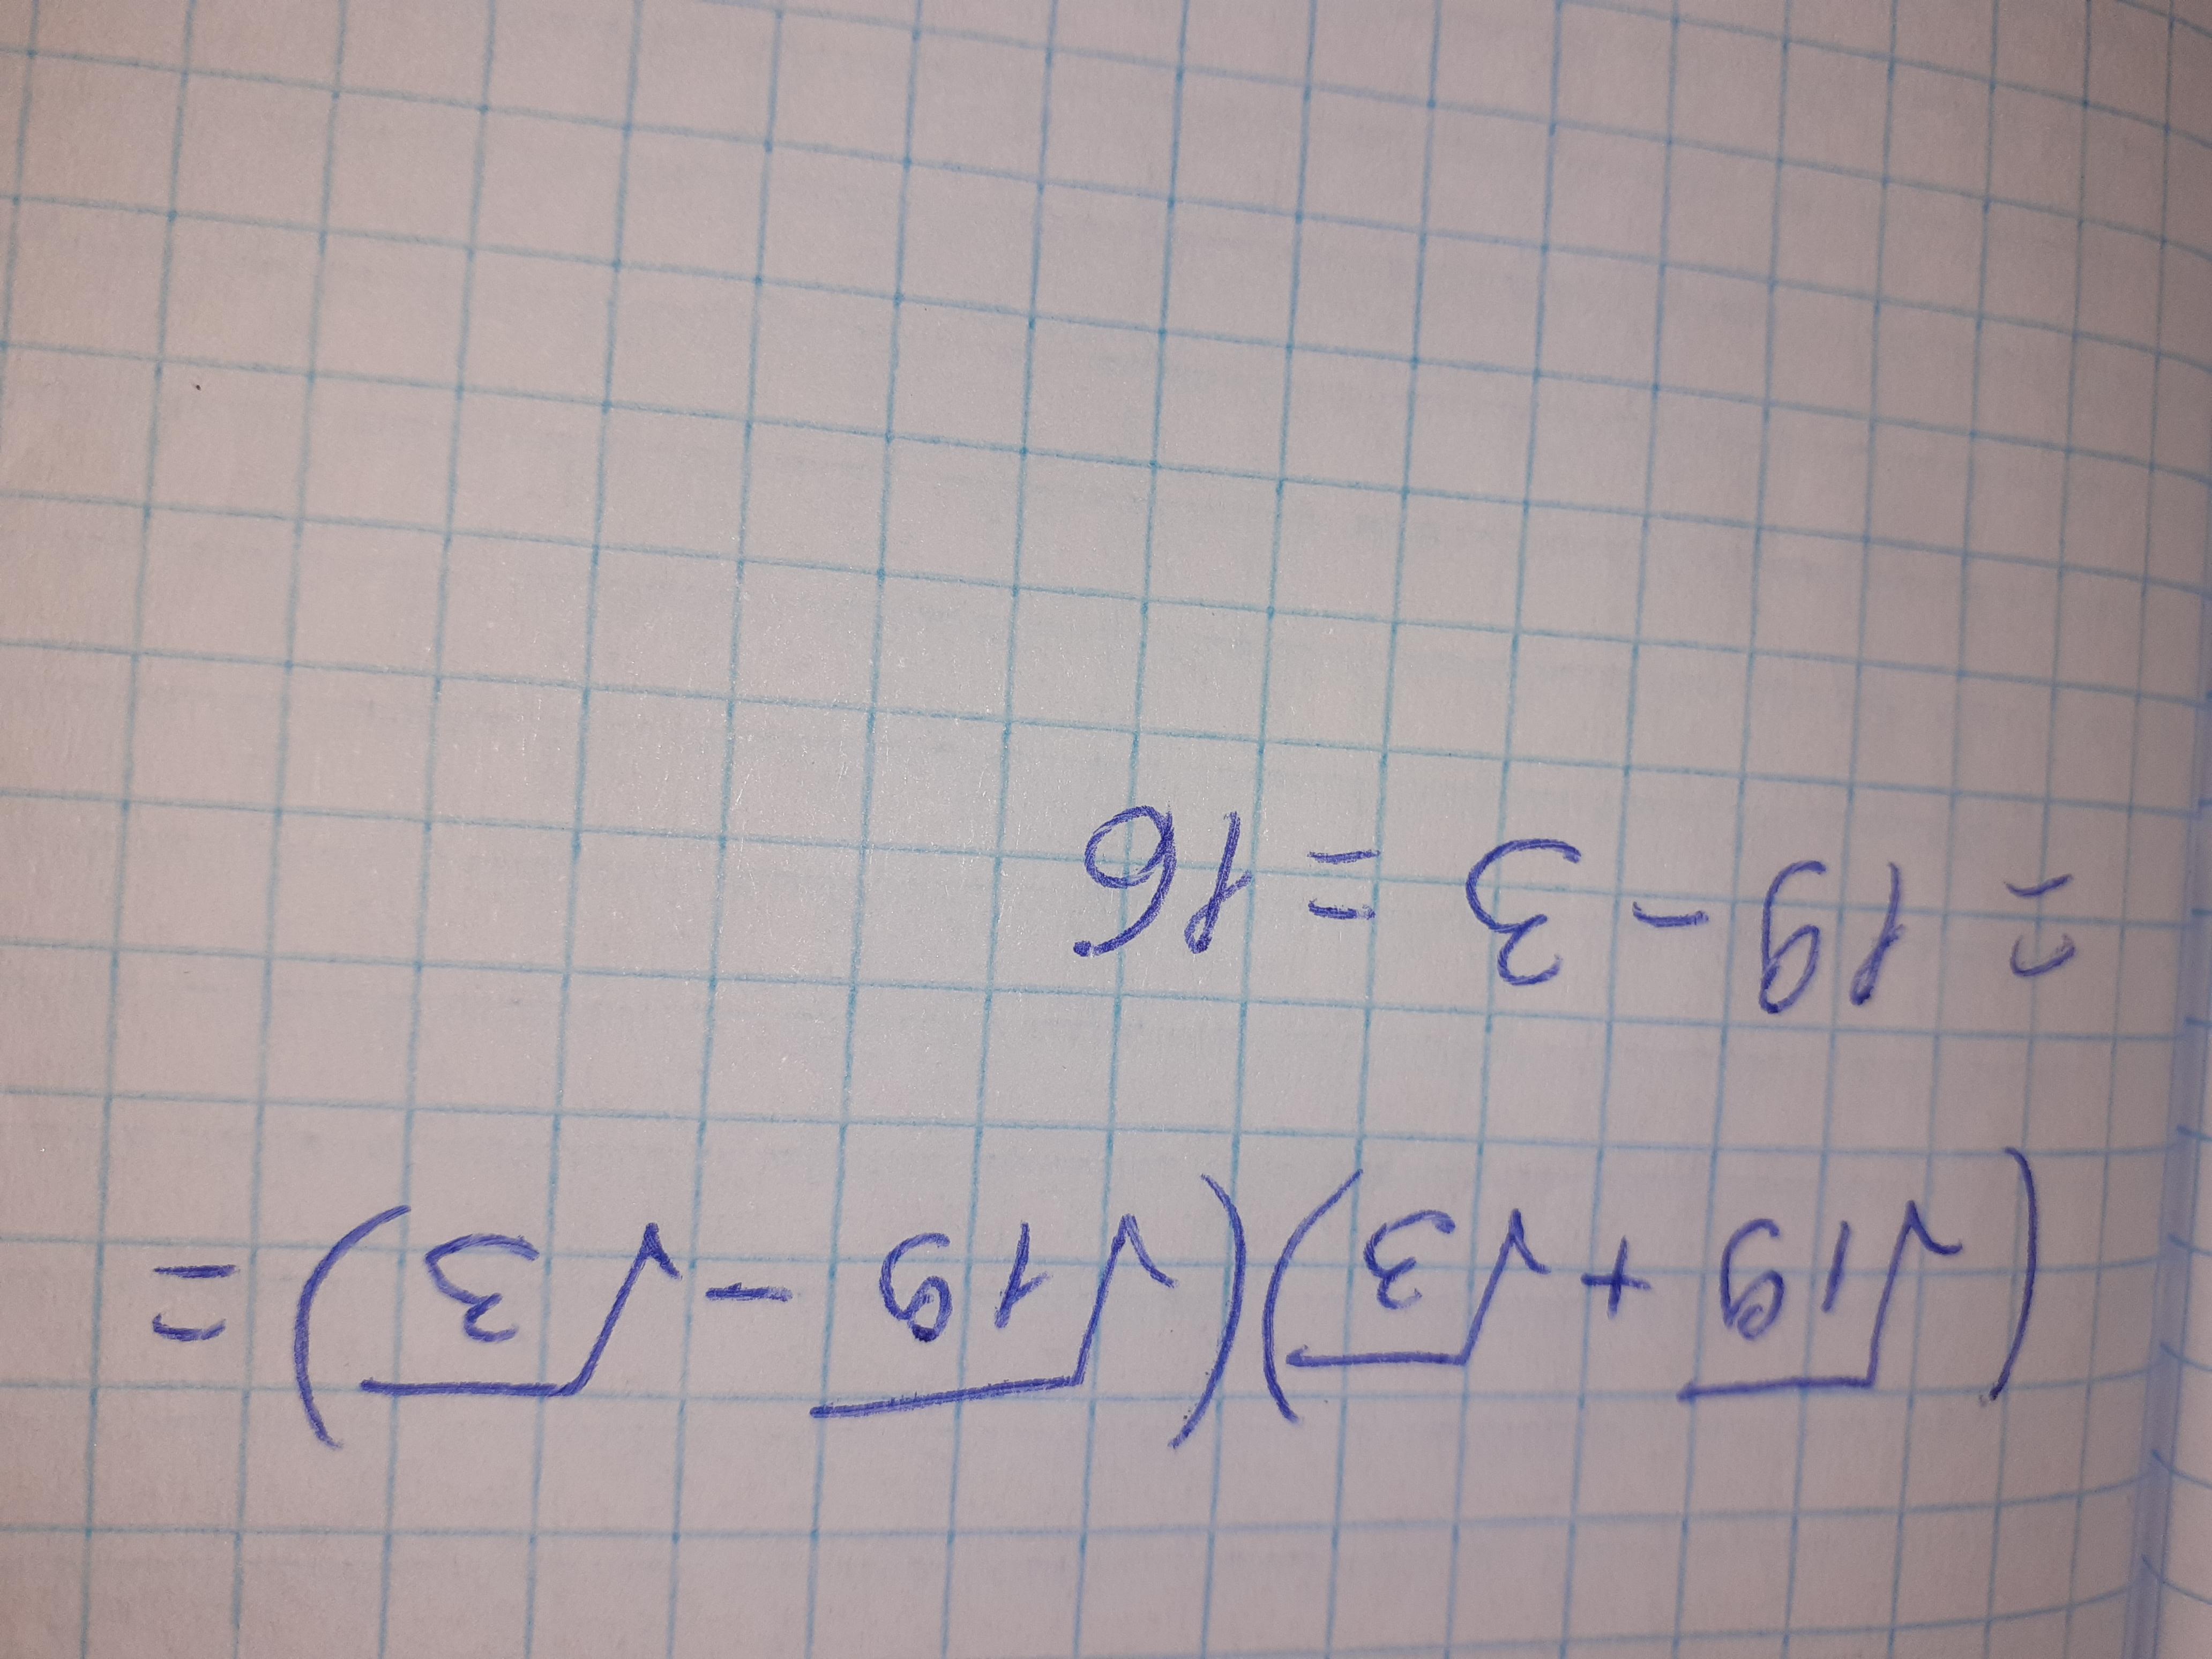 (√19 + √3)(√19 - √3) =
= 19 - 3 = 16